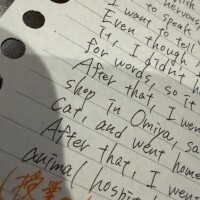 nervous,
to speak
I want to tell
Even though I
it, I didn't h
for words, so it
After that, I wen
shop in Omiya, sa
cat, and went home
After that, I went
animal hospi
(授業